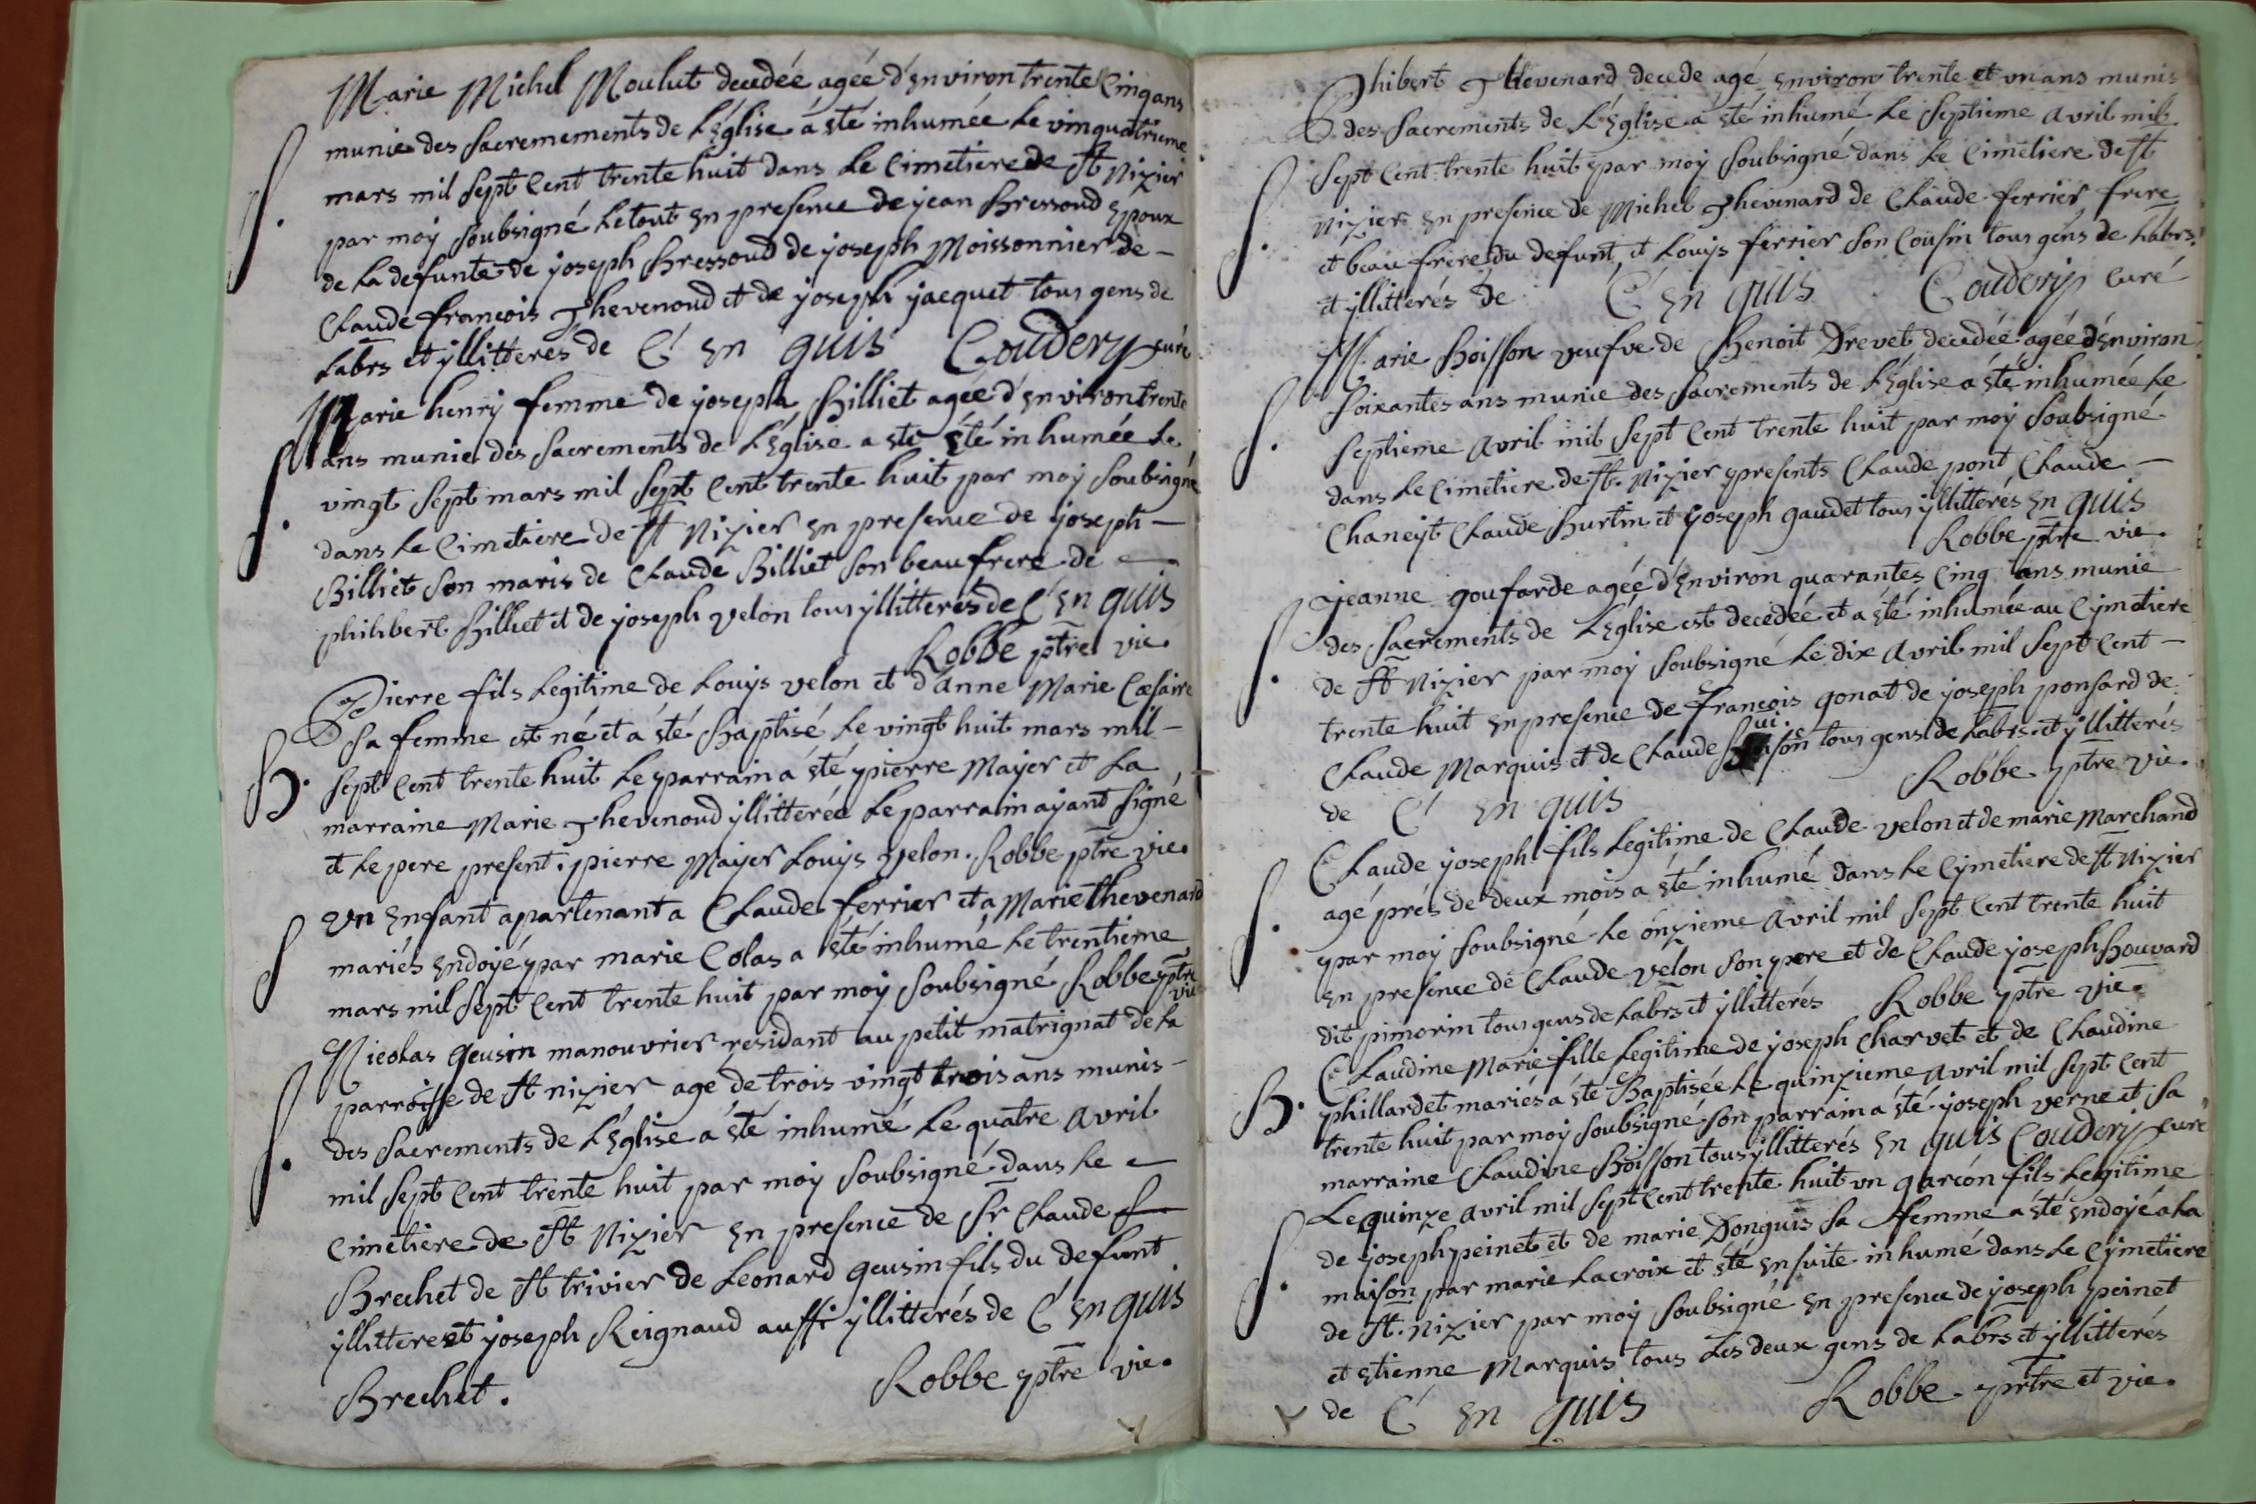 Marie Michel Moulut decedée agée d'environ trente Cinq ans
munie des sacremements de L'Église a été inhumée Le vinquatrieme
mars mil sept Cent trente huit dans Le Cimetiere de st Nizier
S. par moy soubsigné Le tout En presence de jean Bressoud Epoux
de La defunte de joseph Bressoud de joseph Moissonnier de –
Claude françois Thevenoud et de joseph jacquet tous gens de
Labrs et yllitterés de C' En quis Coudery curé
Marie henry femme de joseph Billiet agée d'environ trente
ans munie des sacrements de L'Église a ste été inhumée Le
vingt sept mars mil sept Cent trente huit par moy soubsigné
S. dans Le Cimetiere de st Nizier En presence de joseph –
Billiet son maris de Claude Billiet son beaufrere de
philibert Billiet et de joseph velon tous yllitterés de C' En quis
Robbe ptre vic.
Pierre fils Legitime de Louys velon et d'anne Marie Cæsaire
sa femme est né et a été Baptisé Le vingt huit mars mil –
B. sept Cent trente huit Le parrain a été pierre Mayer et La
marraine Marie Thevenoud yllitterée Le parrain ayant signé
et Le pere present. pierre Mayer Louys velon. Robbe ptre vic.
vn Enfant apartenant a Claude ferrier et a Marie thevenard
S mariés Endoyé par marie Colas a été inhumé Le trentieme
mars mil sept Cent trente huit par moy soubsigné Robbe ptre
vic
Nicolas Geusin manouvrier residant au petit matrignat de La
parroisse de st nizier agé de trois vingt trois ans munis –
S. des sacrements de L'Église a été inhumé Le quatre avril
mil sept Cent trente huit par moy soubsigné dans Le
Cimetiere de st Nizier En presence de sr Claude
Brechet de st trivier de Leonard geusin fils du defunt
yllitteré et joseph Reignaud aussi yllitterés de C' En quis
Brechet. Robbe ptre vic.
Phibert Thevenard decede agé Environ trente et vn ans munis
des sacrements de L'Église a été inhumé Le septieme avril mil
sept Cent trente huit par moy soubsigné dans Le Cimetiere de st
S. Nizier En presence de Michel Thevenard de Claude ferrier frere
et beau frere du defunt et Louys ferrier son Cousin tous géns de Labrs
et yllitterés de C' En quis Coudery curé
Marie Boisson veufve de Benoit Drevet decedée agée d'Environ
soixantes ans munie des sacrements de L'Église a été inhumée Le
S. septieme avril mil sept Cent trente huit par moy soubsigné
dans Le Cimetiere de st. Nizier presents Claude pont Claude –
Chaneyt Claude Burtin et joseph gaudet tous yllitterés En quis
Robbe ptre vic.
jeanne goufarde agée d'Environ quarantes Cinq ans munie
des sacrements de L'Église est decedée et a été inhumée au Cymetiere
S. de st Nizier par moy soubsigné Le dix avril mil sept Cent –
trente huit En presence de françois gonat de joseph ponsard de
Claude Marquis et de Claude tous gens de Labrs et yllitterés
de C' En quis Robbe ptre vic.
Claude joseph fils Legitime de Claude velon et de marie Marchand
agé prés de deux mois a été inhumé dans Le Cymetiere de st Nizier
S. par moy soubsigné Le ónzieme avril mil sept Cent trente huit
En presence de Claude velon son pere et de Claude joseph Bouvard
dit pimorin tous gens de Labrs et yllitterés Robbe ptre vic.
Claudine Marie fille Legitime de joseph Charvet et de Claudine
B. phillardet mariés a été Baptisée Le quinzieme avril mil sept Cent
trente huit par moy soubsigné son parrain a été joseph verne et sa
marraine Claudine Boisson tous yllitterés En quis Coudery curé
Le quinze avril mil sept Cent trente huit vn garcón fils Legitime
de joseph peinet et de marie Donguis sa femme a été Endoyé a La
S. maison par marie Lacroix et été Ensuite inhumé dans Le Cymetiere
de st. Nizier par moy soubsigné En presence de joseph peinet
et Etienne Marquis tous Les deux gens de Labrs et yllitterés
de C' En quis Robbe prtre et vic.